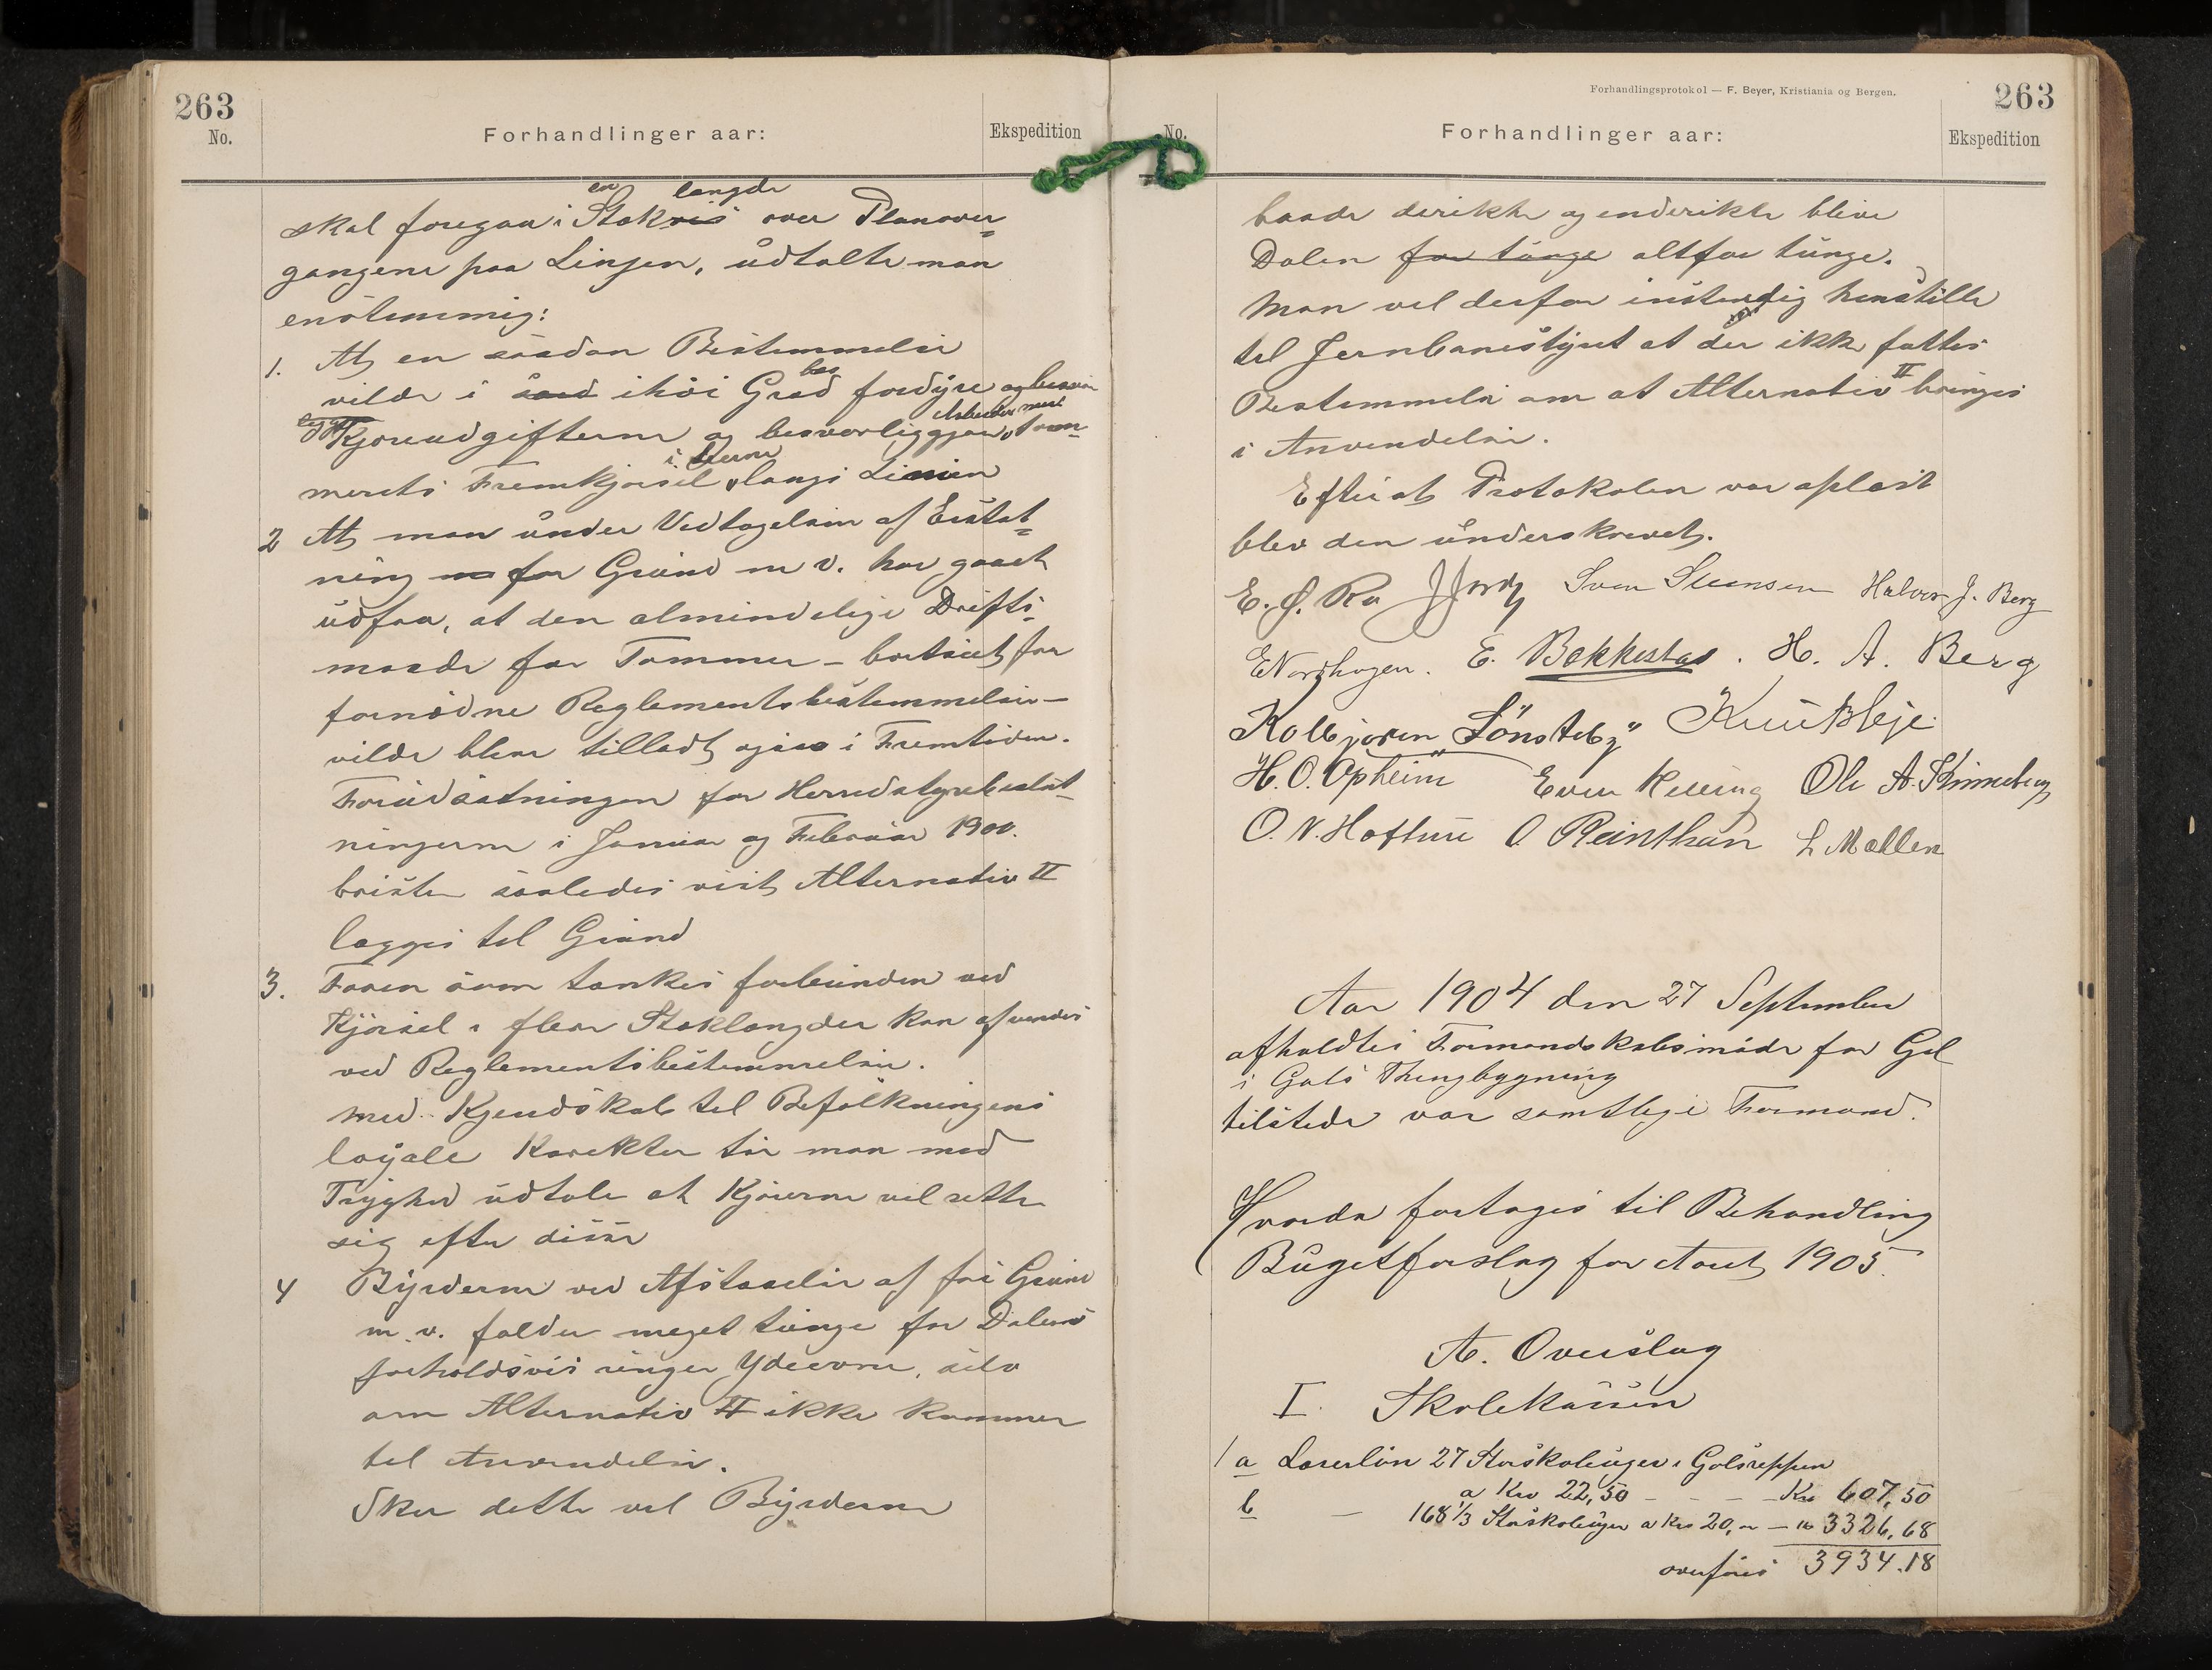 263
No.
Forhandlinger aar:
Ekspedition
en længde
skal foregaa i Stokvis over Planover=
gangene paa Linjen, udtalte man
enstemmig:
1. At en saadan Bestemmelse
vilde i saad ihöi Grad fordyre og besvær
Kjøreudgifterne og besværliggjøre Tøm=
merets Fremkjørsel langs Linien
2 At man under Vedtagelsen af Erstat=
ning for Grund m v. har gaaet
udfra, at den almindelige Drifts=
maade for Tømmer – bortseet fra
fornødne Reglementsbestemmelser –
vilde blive tilladt ogsaa i Fremtiden.
Forudsætningen for Herredsstyrebeslut=
ningerne i Januar og Februar 1900.
brister saaledes vist Alternativ II
lægges til Grund
3. Faren som tænkes forbunden ved
Kjørsel i flere Stoklængder kan afvendes
ved Reglementsbestemmelser.
Med Kjendskab til Befolkningens
loyale Karekter tør man med
Tryghed udtale at Kjørerne vil rette
sig efter disse
4 Byrderne ved Afstaaelse af fri Grund
m.v. falder meget tunge for Dalens
forholdsvis ringe Ydeevne, selv
om Alternativ II ikke kommer
til Anvendelse.
Sker dette vil Byrderne
Forhandlingsprotokol — F. Beyer, Kristiania og Bergen.
263
No.
Forhandlinger aar:
Ekspedition
baade derikte og enderikte blive
Dalen for tunge altfor tunge.
Man vil derfor instendig henstille
til Jernbanestyret at der ikke fattes
Bestemmelse om at Alternativ II bringes
i Anvendelse.
Efterat Protokolen var oplæst
blev den underskrevet.
E. Ø. Ro Sven Svensen Halvor J. Berg
E Nordhagen. E. Bekkestad. H. A. Berg
Kolbjørn Sönsteby Knut Bleje
H. O. Opheim Even Helling Ole A. Skinneberg
O. N. Hoftun O Reinthon L Møllen
Aar 1904 den 27 September
afholdtes Formandskabsmøde for Gol
i Gols Thingbygning
tilstede var samtlige Formænd.
Hvorda fortoges til Behandling
Bugetforslag for Aaret 1905.
A. Overslag
I. Skolekassen
1 a Lærerløn 27 Storskoleuger i Golsreppen
a Kr 22,50 – – – Kr 607,50
b – 168 1/3 Storskoleuger a Kr 20,00 – " 3326,68
overføres 3934.18